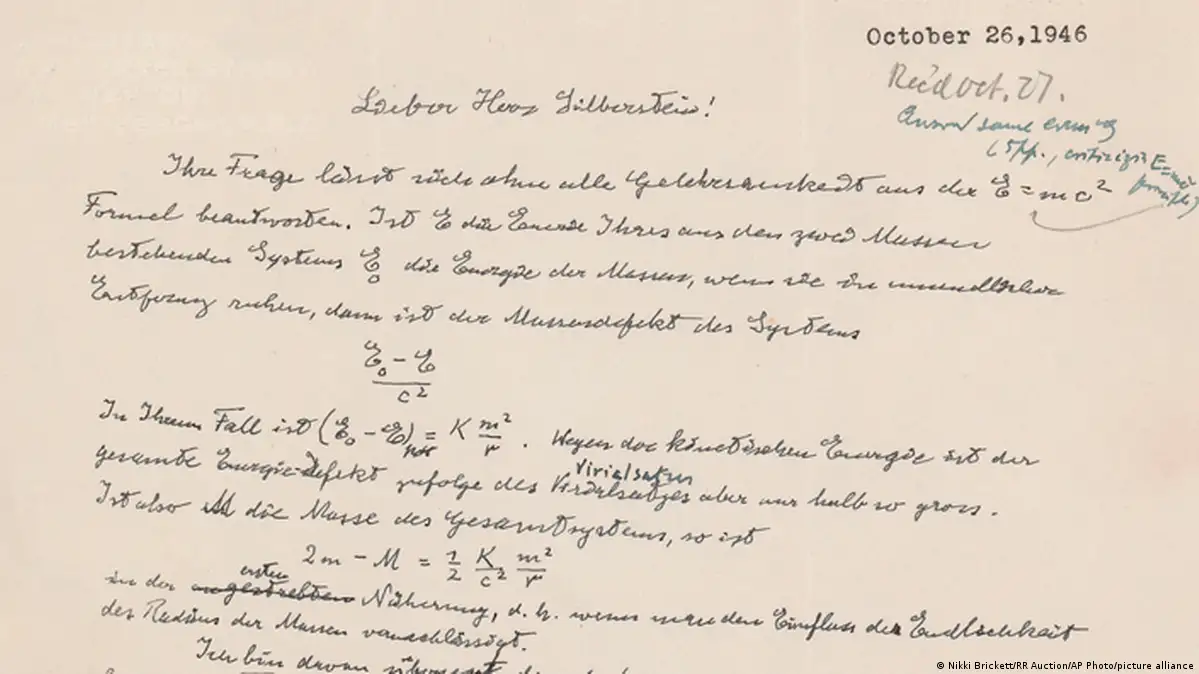 October 26,1946
Rec'd Oct. 27.
Lieber Herr Silberstein!
Ihre Frage lässt sich ohne alle Gelehrsamkeit aus der E = mc²
Formel beantworten. Ist E die Energie Ihres aus den zwei Massen
bestehenden Systems E₀ die Energie der Massen, wenn sie in unendlicher
Entfernung ruhen, dann ist der Massendefekt des Systems
E₀ - E
c²
In Ihrem Fall ist (E₀ - E) = K m²/r . Wegen der kinetischen Energie ist der
Virialsatzes
gesamte Energie-Defekt zufolge des Virialsatzes aber nur halb so gross.
Ist also M die Masse des Gesamtsystems, so ist
2m - M = 1/2 K/c² m²/r
ersten
in der Näherung, d. h. wenn man den Einfluss der Endlichkeit
des Radius der Massen vernachlässigt.
Ich bin davon
© Nikki Brickett/RR Auction/AP Photo/picture alliance